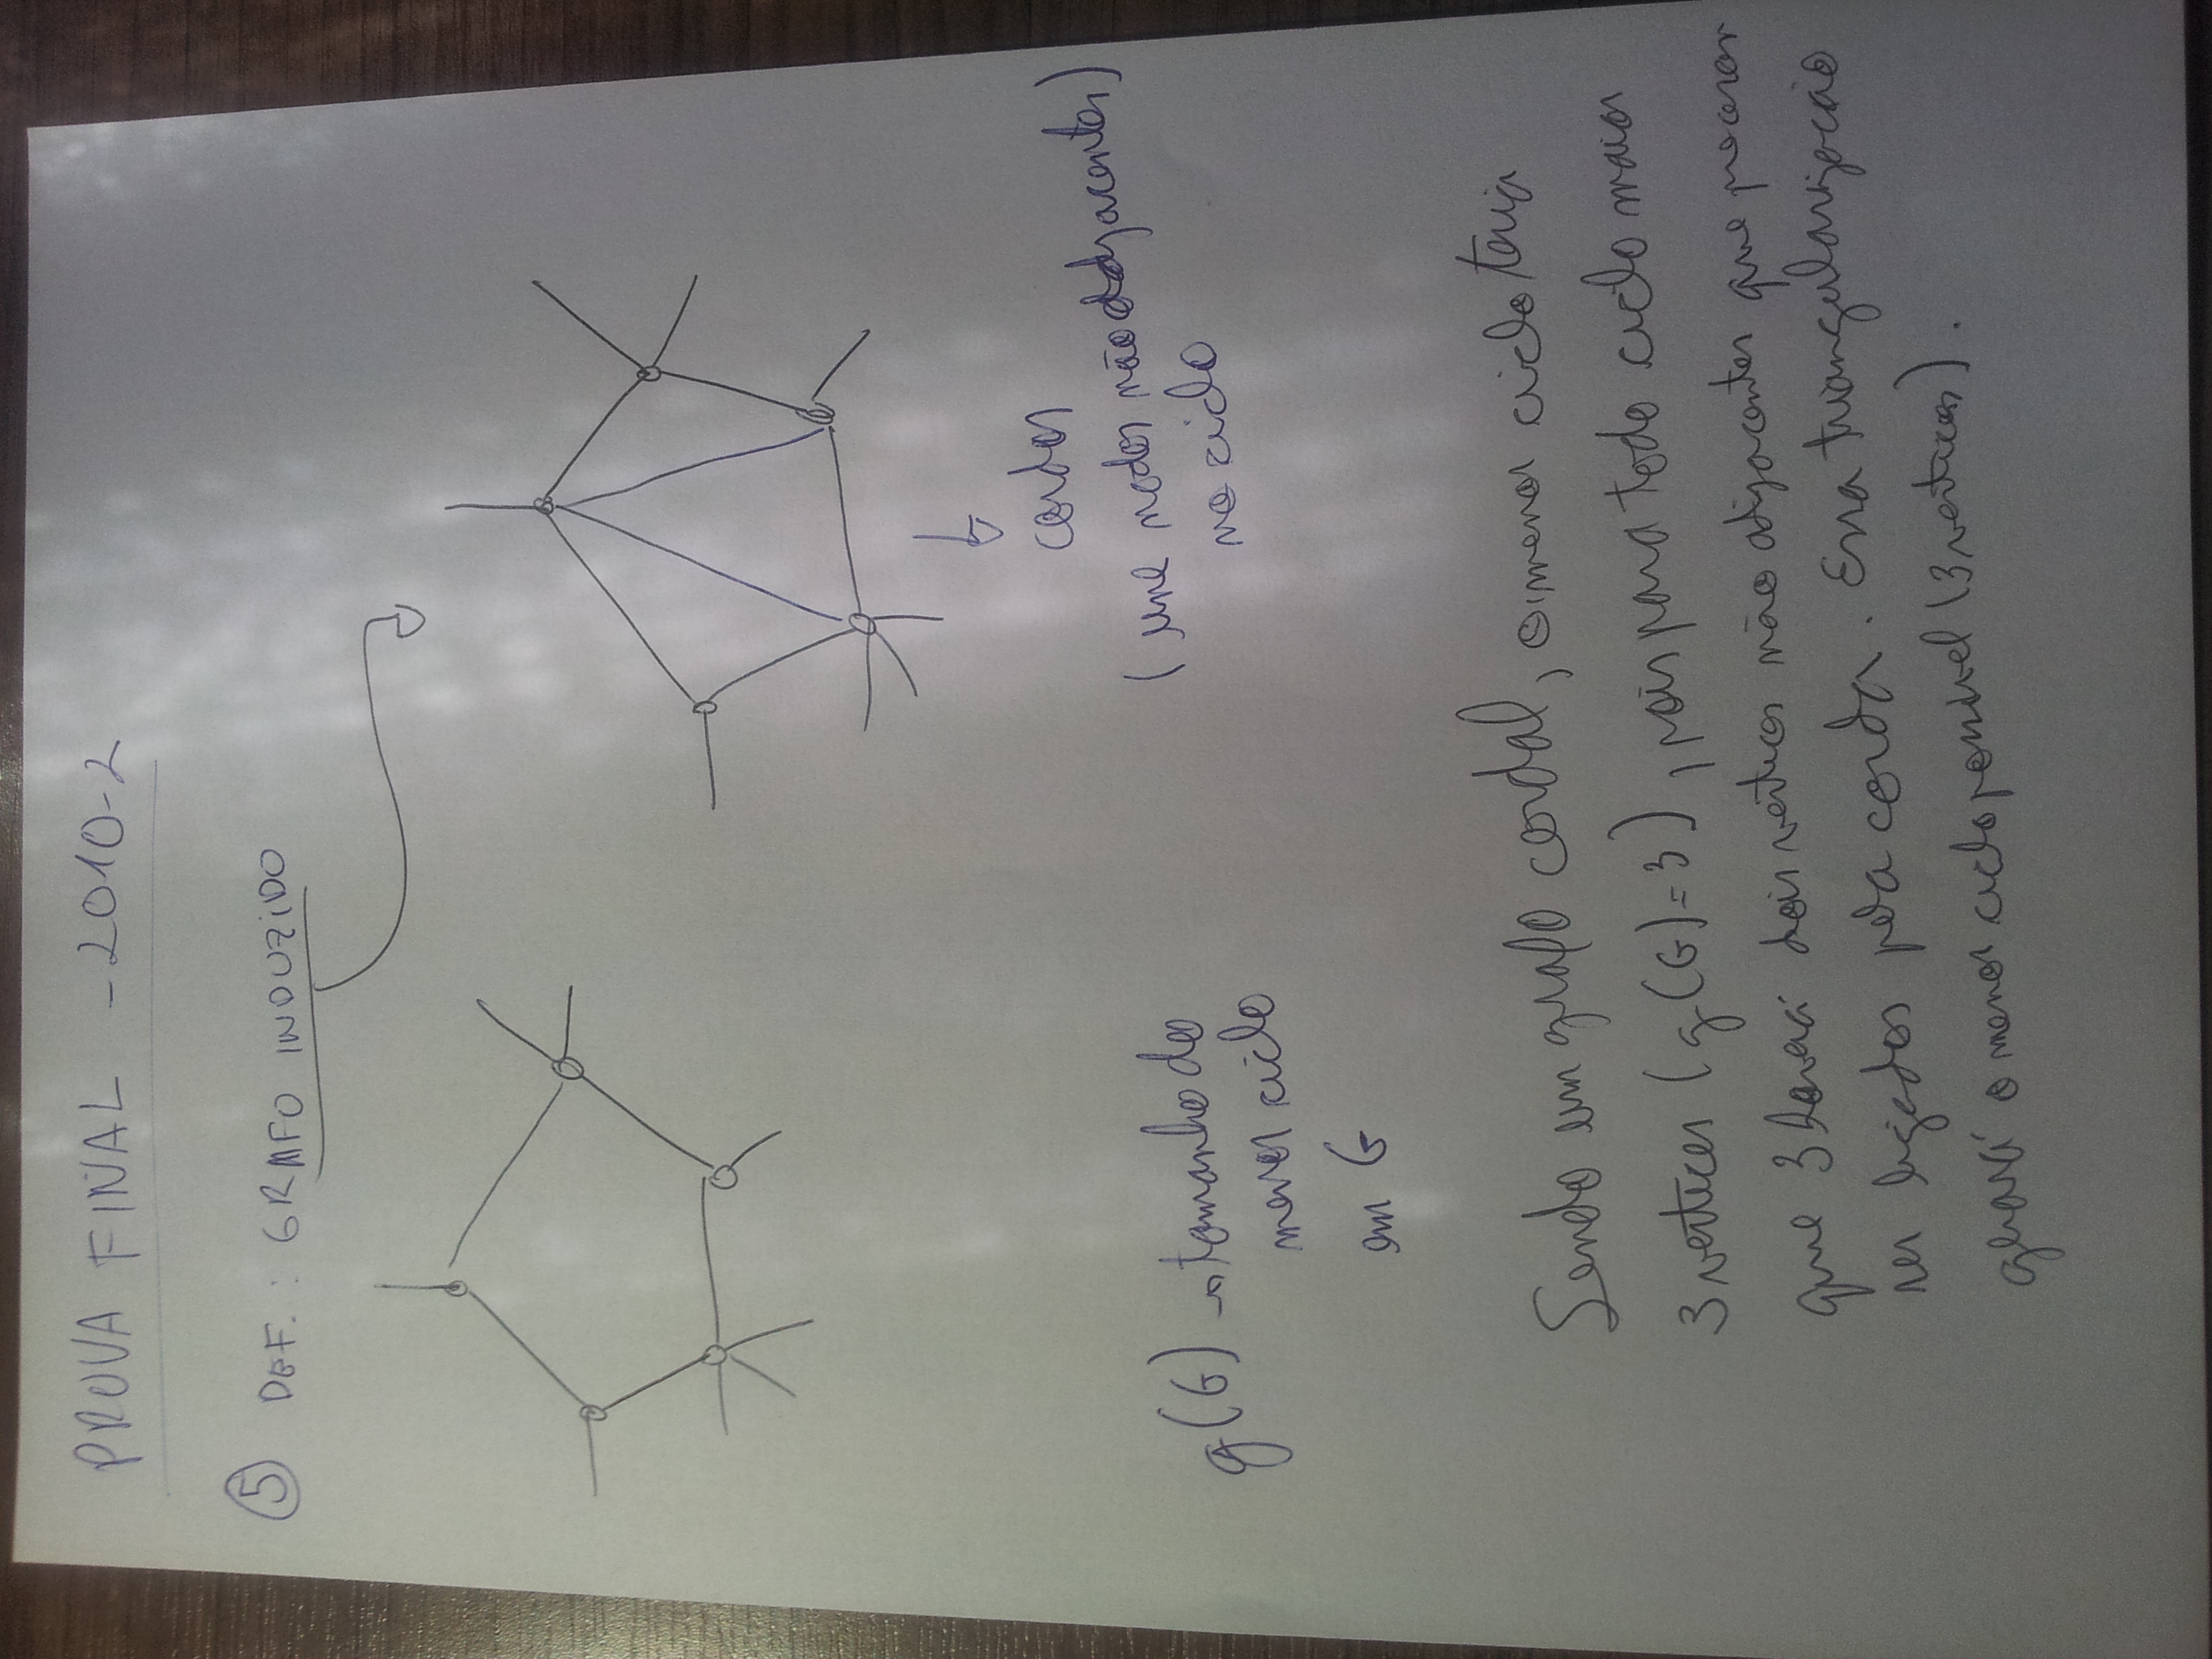 PROVA FINAL - 2010-2
5 DEF.: GRAFO INDUZIDO
cordas
(une nodos não adjacentes)
no ciclo
g(G) → tamanho do
menor ciclo
em G
Sendo um grafo cordal, o menor ciclo terá
3 vértices (g(G)=3), pois para todo ciclo maior
que 3 haverá dois vértices não adjacentes que precisam
ser ligados pela corda. Essa triangularização
gerará o menor ciclo possível (3 vértices).